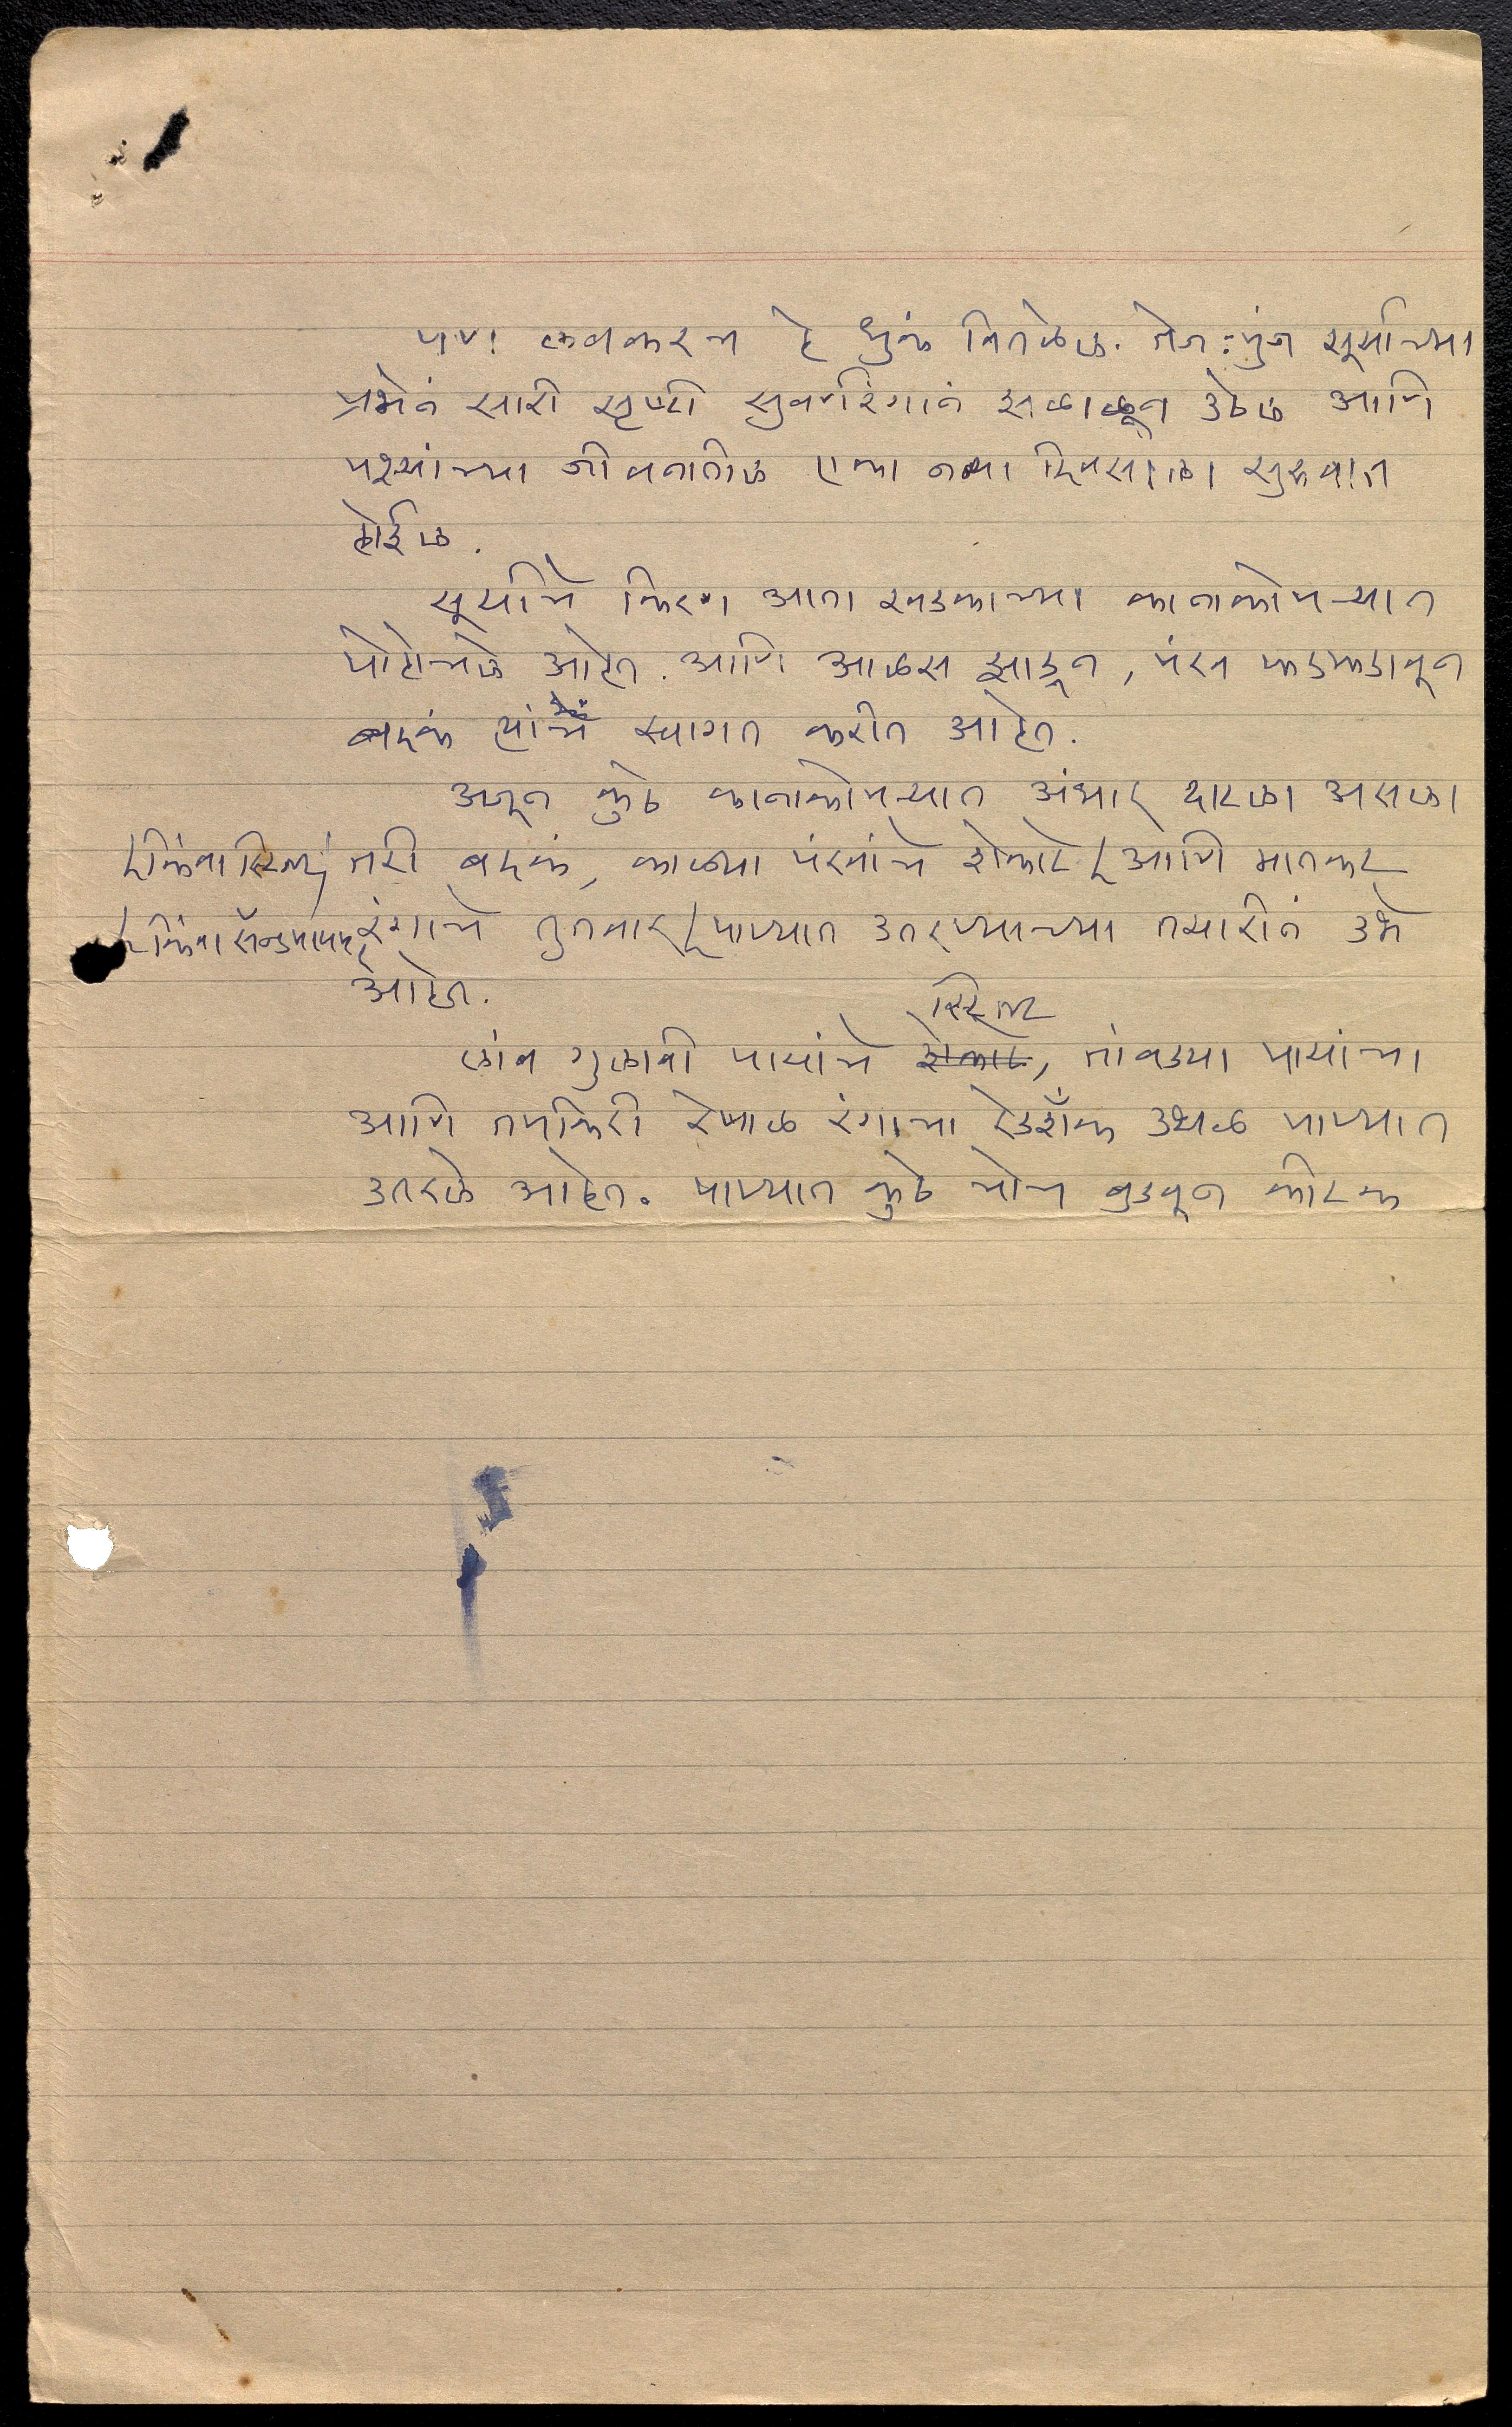 पण लवकरच हे धुकं वितळेल. तेजःपुंज सूर्याच्या
प्रभेनं सारी सृष्टी सुवर्णरंगानं झळाळून उठेल आणि
पक्ष्यांच्या जीवनातील एका नव्या दिवसाला सुरुवात
होईल.
सूर्याचे किरण आता खडकाच्या कानाकोपऱ्यात
पोहोचले आहेत. आणि आळस झाडून, पंख फडफडावून
बदकं त्यांचे स्वागत करीत आहेत.
अजून कुठे कानाकोपऱ्यात अंधार दाटला असला
किंवा स्टिल्ट
तरी बदकं, काळ्या पंखांचे शेकाटे आणि मातकट
किंवा सॅन्डपायपर
रंगाचे तुतवार पाण्यात उतरण्याच्या तयारीनं उभे
आहेत.
स्टिल्ट
लांब गुलाबी पायांचे शेकाटे, तांबड्या पायांचा
आणि तपकिरी रेषाळ रंगाचा रेडशँक उथळ पाण्यात
उतरले आहेत. पाण्यात कुठे चोच बुडवून कीटक